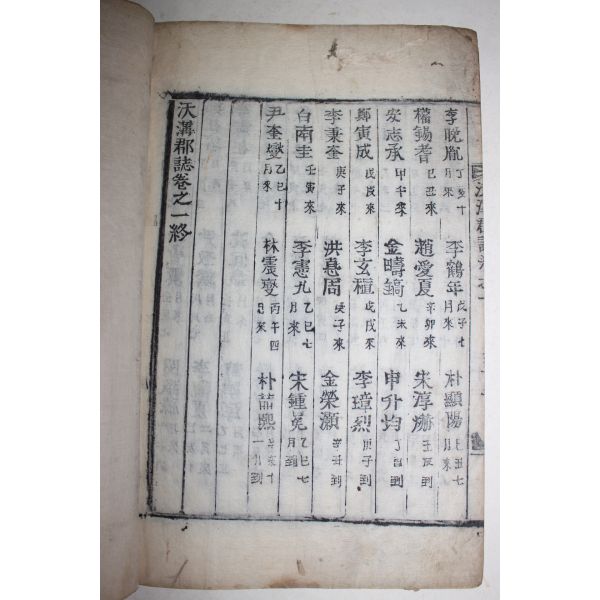 李晩胤 丁亥十月來 李鶴年 戊子七月來 朴顯陽 己丑七月來
權錫耆 己丑來 趙愛夏 辛卯來 朱淳瀞 壬辰到
安志承 甲午來 金疇鎬 乙未來 申升均 丁酉到
鄭寅成 戊戌來 李玄種 戊戌來 李璋烈 庚子到
李秉奎 庚子來 洪惪周 庚子來 金榮灝 辛丑到
白南圭 壬寅來 李憲九 乙巳七月來 宋鍾冕 乙巳七月到
尹奎燮 乙巳十月來 林震燮 丙午四月來 朴喆熙
汏溝郡誌卷之一終